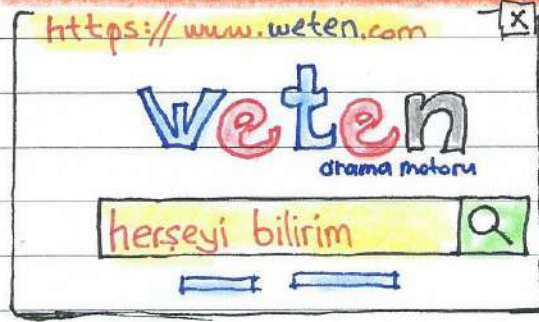 https:// www.weten.com
x
weten
arama motoru
herşeyi bilirim